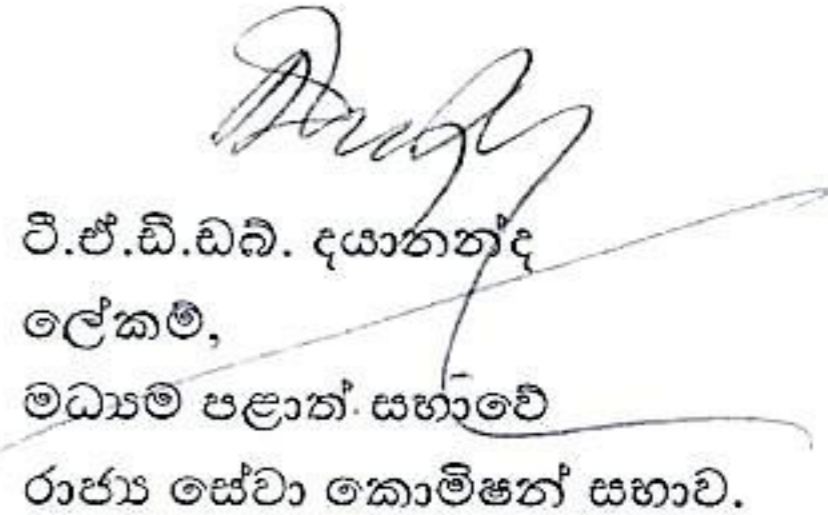 ටී.ඒ.ඩී.ඩබ්. දයානන්ද
ලේකම්,
මධ්‍යම පළාත් සභාවේ
රාජ්‍ය සේවා කොමිෂන් සභාව.